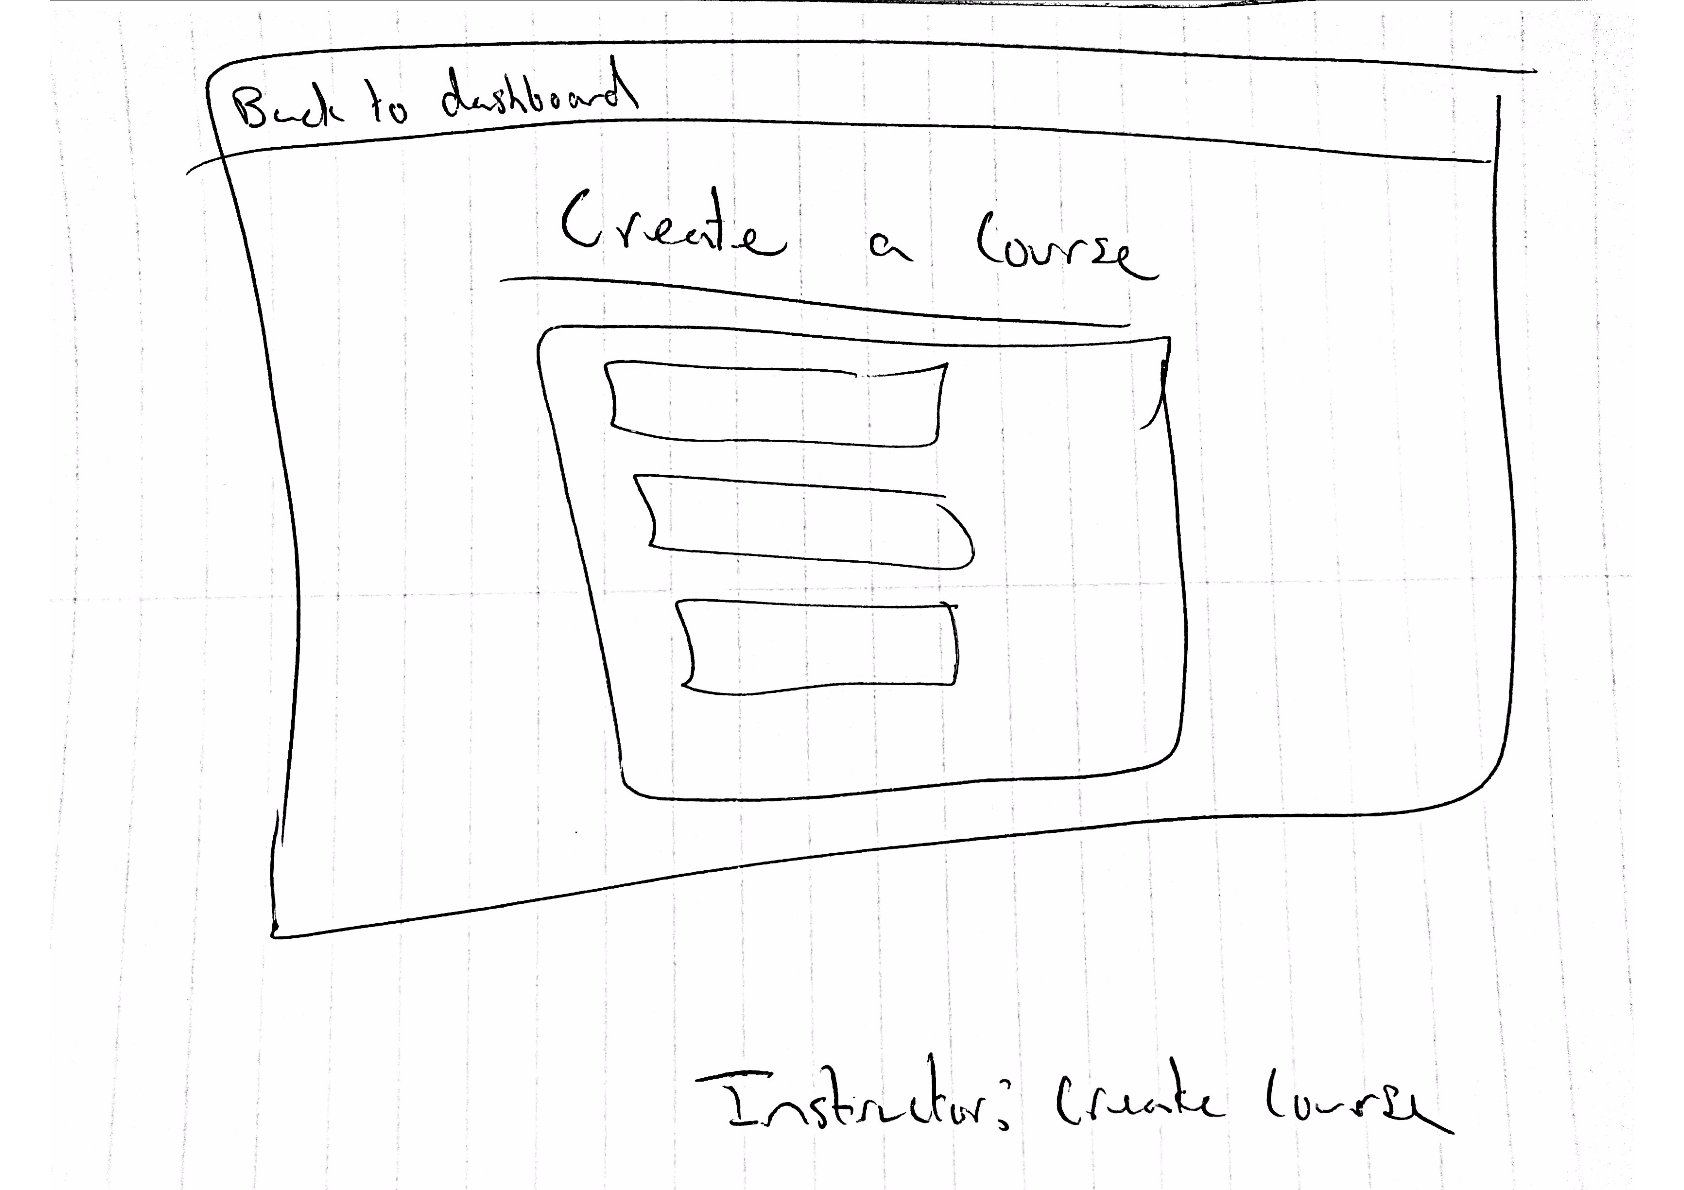 Back to dashboard
Create a Course
Instructor: Create Course